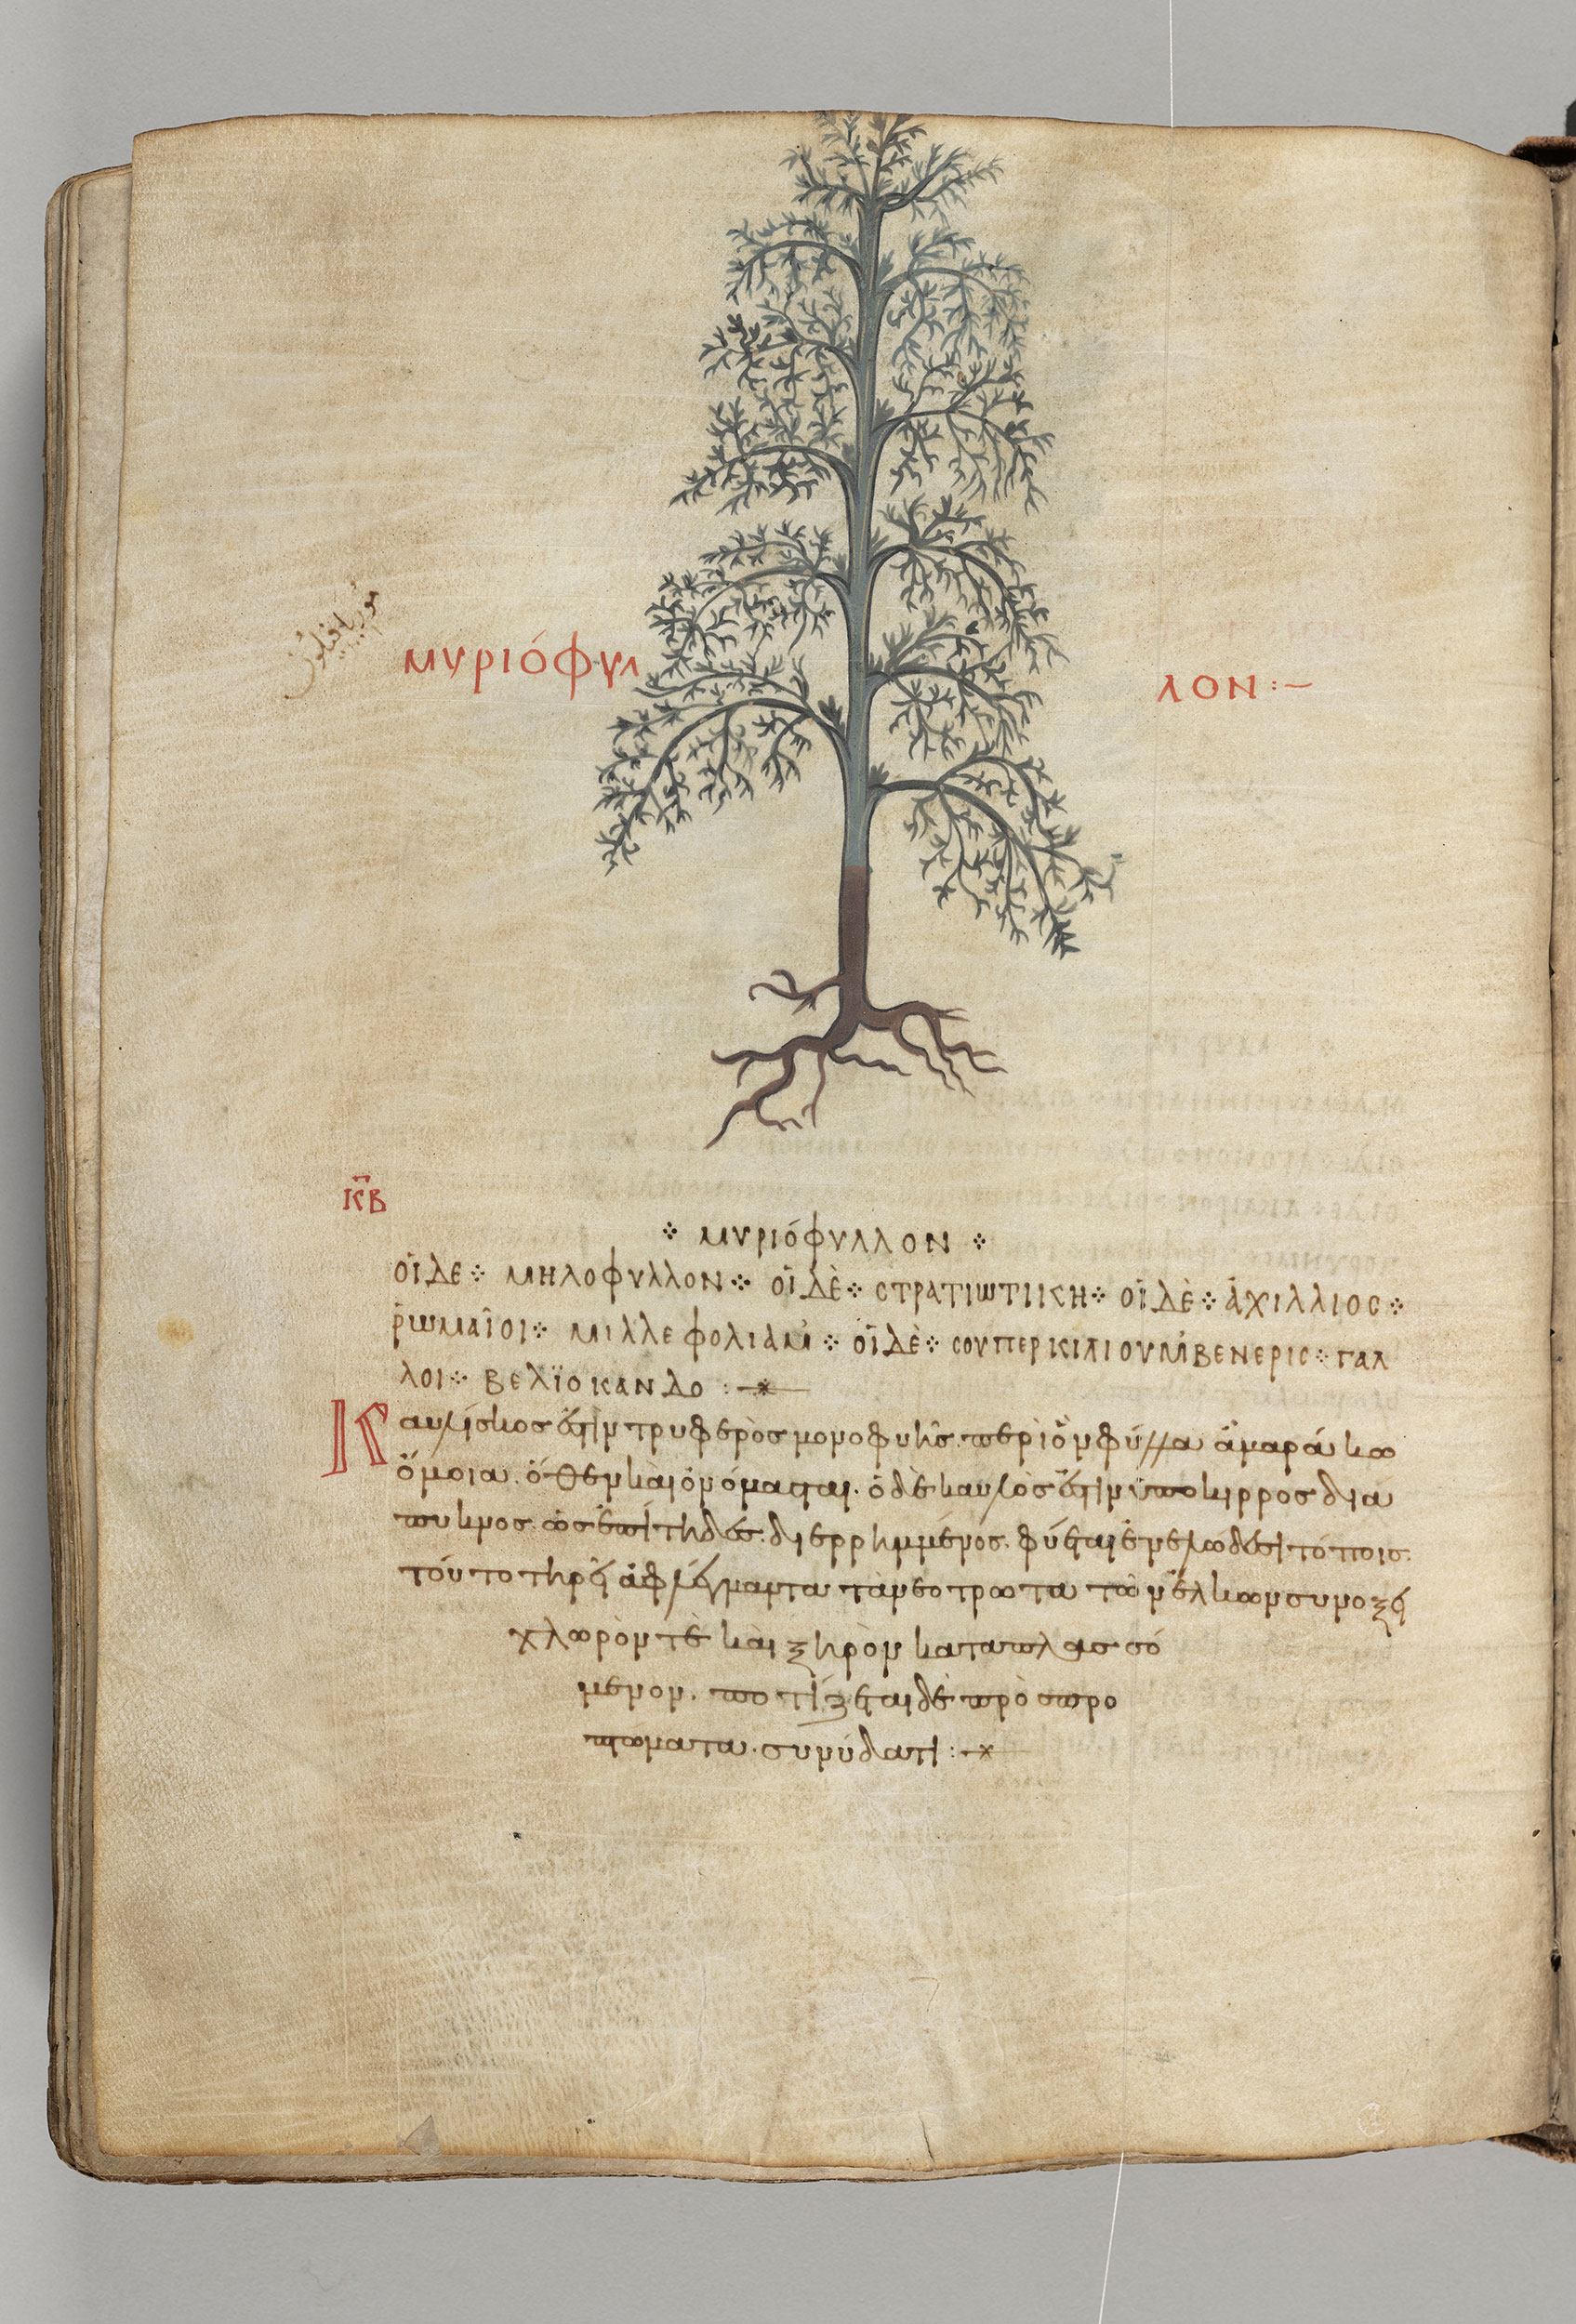 موريافيلون
ΜΥΡΙΌΦΥΛ
ΛΟΝ :–
ΚΒ
⁘ ΜΥΡΙΌΦΥΛΛΟΝ ⁘
ΟΪ́ΔΕ ⁘ ΜΗΛΟΦΥΛΛΟΝ ⁘ ΟΪ́ΔῈ ⁘ ΣΤΡΑΤΙΩΤΙΙΚΗ ⁘ ΟΪ́ΔῈ ⁘ ἈΧΙΛΛΙΟΣ ⁘
ῬΩΜΑΪ͂ΟΙ ⁘ ΜΙΛΛΕΦΟΛΙΑΜ ⁘ ΟΪ́ΔῈ ⁘ ΣΟΥΠΕΡΚΙΛΙΟΥΜΒΕΝΕΡΙΣ ⁘ ΓΑΛ
ΛΟΙ ⁘ ΒΕΛΪΟΚΑΝΔΟ :
Καυλίσκος ἐστὶν τρυφερὸς μονοφυὴς. περὶ ὃν φύλλα ἀμαράκω
ὅμοια. ὅθεν καὶ ὀνόμασται. ὁ δὲ καυλὸς ἐστὶν ὑπόκιρρος δια
πυκνος. ὡς ἐπίτηδες. διερρημμένος. φύεται ἐν ἑλώδεσι τόποις.
τόυτο τηρεῖ ἀφλέγμαντα τὰ νεότρωτα τῶν ἑλκων συν ὀξει
χλωρόν τὲ καὶ ξηρὸν καταπλασσό
μενον. ποτίζεται δὲ πρὸς προ
πτώματα. συν ύδατι :